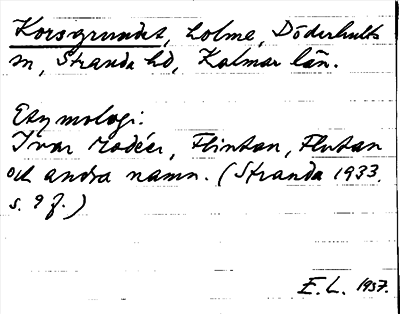 Korsgrundet, holme, Döderhults
sn, Stranda hd, Kalmar län.
Etymologi:
Ivar Modéer, Flintan, Flutan
och andra namn. (Stranda 1933.
s. 9 f.)
E. L. 1937.